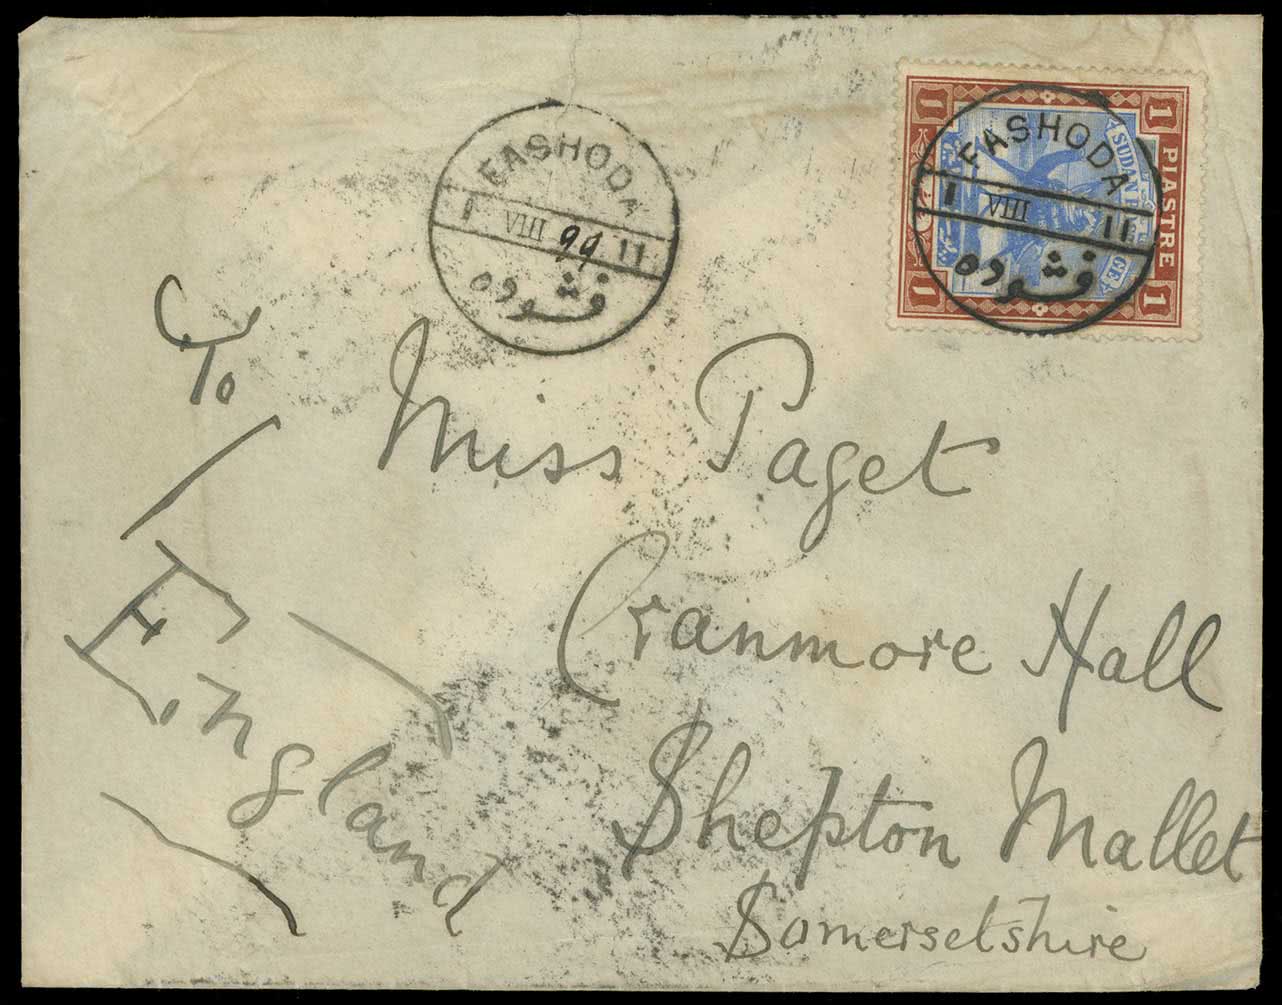 FASHODA
1 VIII 99 11
فشوده
1 PIASTRE 1
SUDAN
1
1
FASHODA
1 VIII 11
فشوده
To
Miss Paget
Cranmore Hall
Shepton Mallet
Somersetshire
England